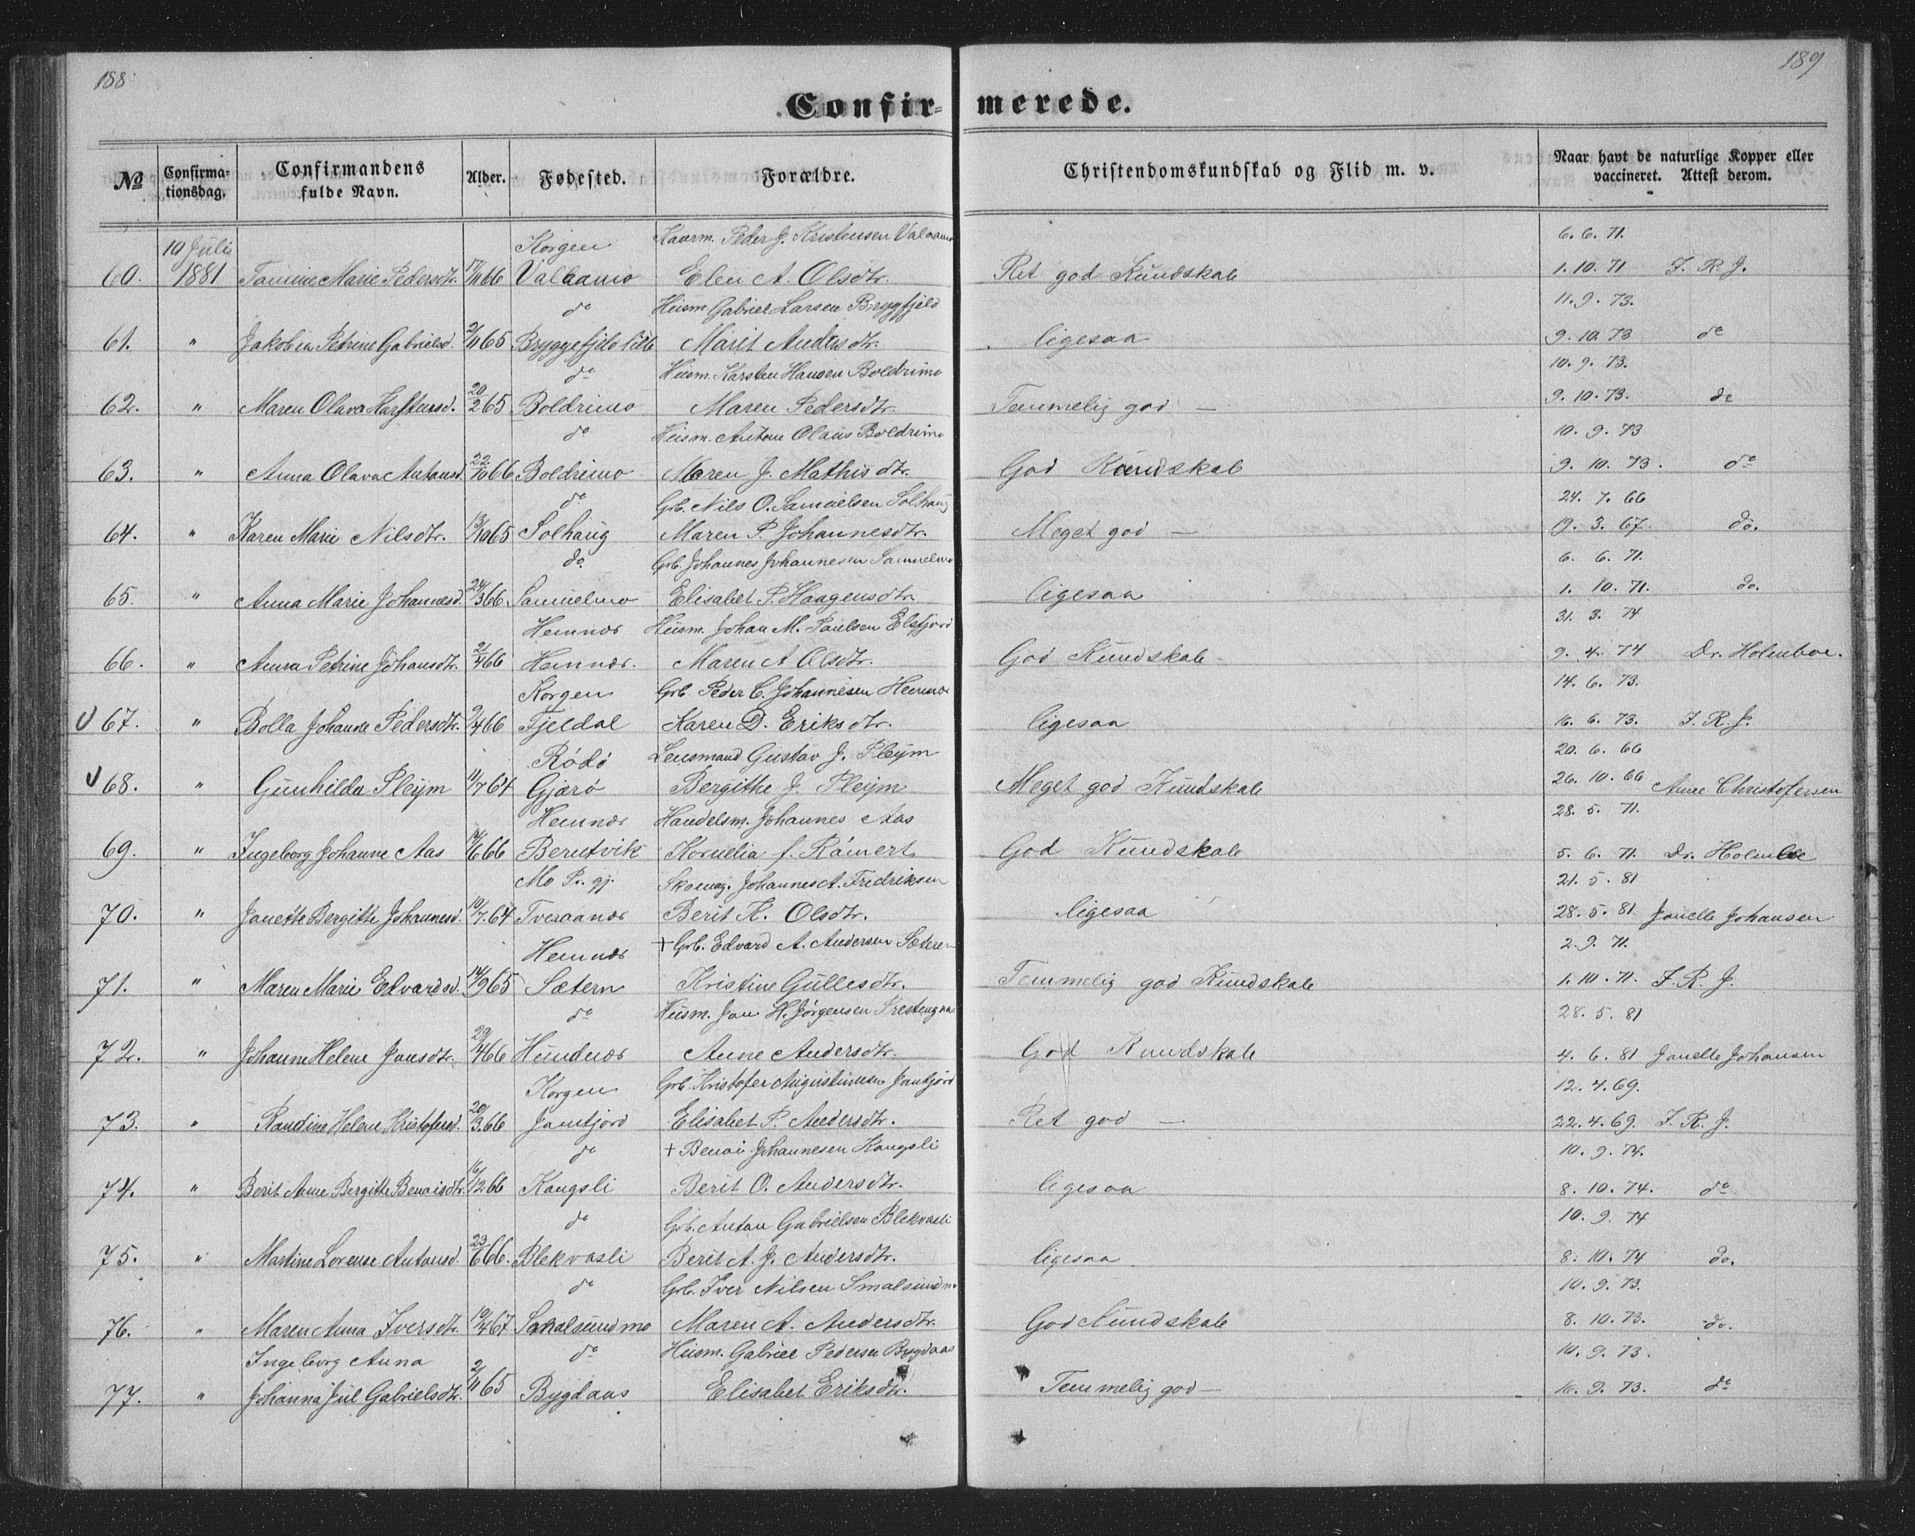 188
189
Confir-merede.
№ Confirma-tionsdag. Confirmandens fulde Navn. Alder. Fødested. Forældre. Christendomskundskab og Flid m. v. Naar havt de naturlige Kopper eller vaccineret. Attest derom.
10 Juli Korgen Peder J. Kristensen 6. 6. 71.
60. 1881 Marie Pedersdtr. 66 Elen A. Olsdtr. Ret god Kundskab 1. 10. 71 J. R. J.
do Husm. Gabriel Larsen Bryggfjeld 11. 9. 73.
61. " Petrine Gabrielsd. 65 Marit Andersdtr. ligesaa 9. 10. 73 do
do Husm. Karsten Hansen Boldrimo 10. 9. 73.
62. " Maren Olava 20/2 65 Boldrimo Maren Pedersdtr. Temmelig god — 9. 10. 73. do
do Husm. Anton Olaus Boldrimo 10. 9. 73
63. " Anna Olava Antonsd. 22/10 66 Boldrimo Maren J. Mathisdtr. God Kundskab 9. 10. 73. do
do Grb. Nils O. Samuelsen Solhaug 24. 7. 66
64. " Karen Marie Nilsdtr. 13/10 65 Solhaug Maren P. Johannesdtr. Meget god — 19. 3. 67. do.
do. Grb. Johannes Johannesen Samuelmo 6. 6. 71.
65. " Anna Marie Johannesd. 24/3 66 Samuelmo Elisabet P. Haagensdtr. ligesaa 1. 10. 71. do.
Hemnæs Husm. Johan M. Paulsen Elsfjord 31. 3. 74
66. " Anna Petrine Johansdtr. 21/4 66 Hemnæs. Maren A Olsdtr. God Kundskab - 9. 4. 74 Dr. Holmboe.
Korgen Grb. Peder C. Johannesen 14. 6. 73.
67. " Bolla Johanne Pedersdtr. 66 Fjeldal Karen D. Eriksdtr. ligesaa 16. 6. 73. J. R. J.
Rødø Lensmand Gustav J. Pleym 20. 6. 66
68. " Gunhilda Pleym 11/7 64 Gjærø Bergithe J. Pleym Meget god Kundskab 26. 10. 66 Anne Christofersen
Hemnæs Handelsm. Johannes Aas 28. 5. 71.
69. " Ingeborg Johanne Aas 66 Kornelia f. Römert God Kundskab 5. 6. 71. Dr. Holmboe
Mo Pr. gj. Skomag. Johannes A. Fredriksen 21. 5. 81
70. " Bergitte Johannesd. 64 Tveraanæs Berit K. Olsdtr. ligesaa 28. 5. 81 Johansen
Hemnæs + Grb. Edvard A. Andersen Sæteren 2. 9. 71.
71. " Maren Marie Edvardsd. 14/9 65 Sætern Kristine Gullesdtr. Temmelig god Kundskab 1. 10. 71. J. R. J.
do Husm. Jan H. Jørgensen 28. 5. 81
72. " Johanne Helene Jansdtr. 29/4 66 Hundnæs Anne Andersdtr. God Kundskab 4. 6. 81 Johansen
Korgen Grb. Kristofer Augustinusen Jamtjord 12. 4. 69.
73. " Helene Kristofersd. 20/3 66 Jamtjord Elisabet P. Andersdtr. Ret god — 22. 4. 69. J. R. J.
do + Benai Johannesen Kangsli 10. 9. 74.
74. " Berit Anne Bergitte Benaisdtr. 66 Kangsli Berit O. Andersdtr. ligesaa 8. 10. 74. do
do Grb. Anton Gabrielsen Blekvasli 10. 9. 74
75. " Martine Lorense Antonsd. 23/6 66. Blekvasli Berit A. J. Andersdtr. ligesaa 8. 10. 74 do.
do Grb. Iver Nilsen Smalsundmo 10. 9. 73.
76. " Maren Anna Iversdtr. 19/4 67 Smalsundmo Maren A. Andersdtr. God Kundskab 8. 10. 73. do.
Ingeborg Anna do Husm. Gabriel Pedersen Bygdaas 10. 9. 73.
77. " Johanna Jul Gabrielsdtr. 2/11 65 Bygdaas Elisabet Eriksdtr. Temmelig god — 16. 9. 73. do